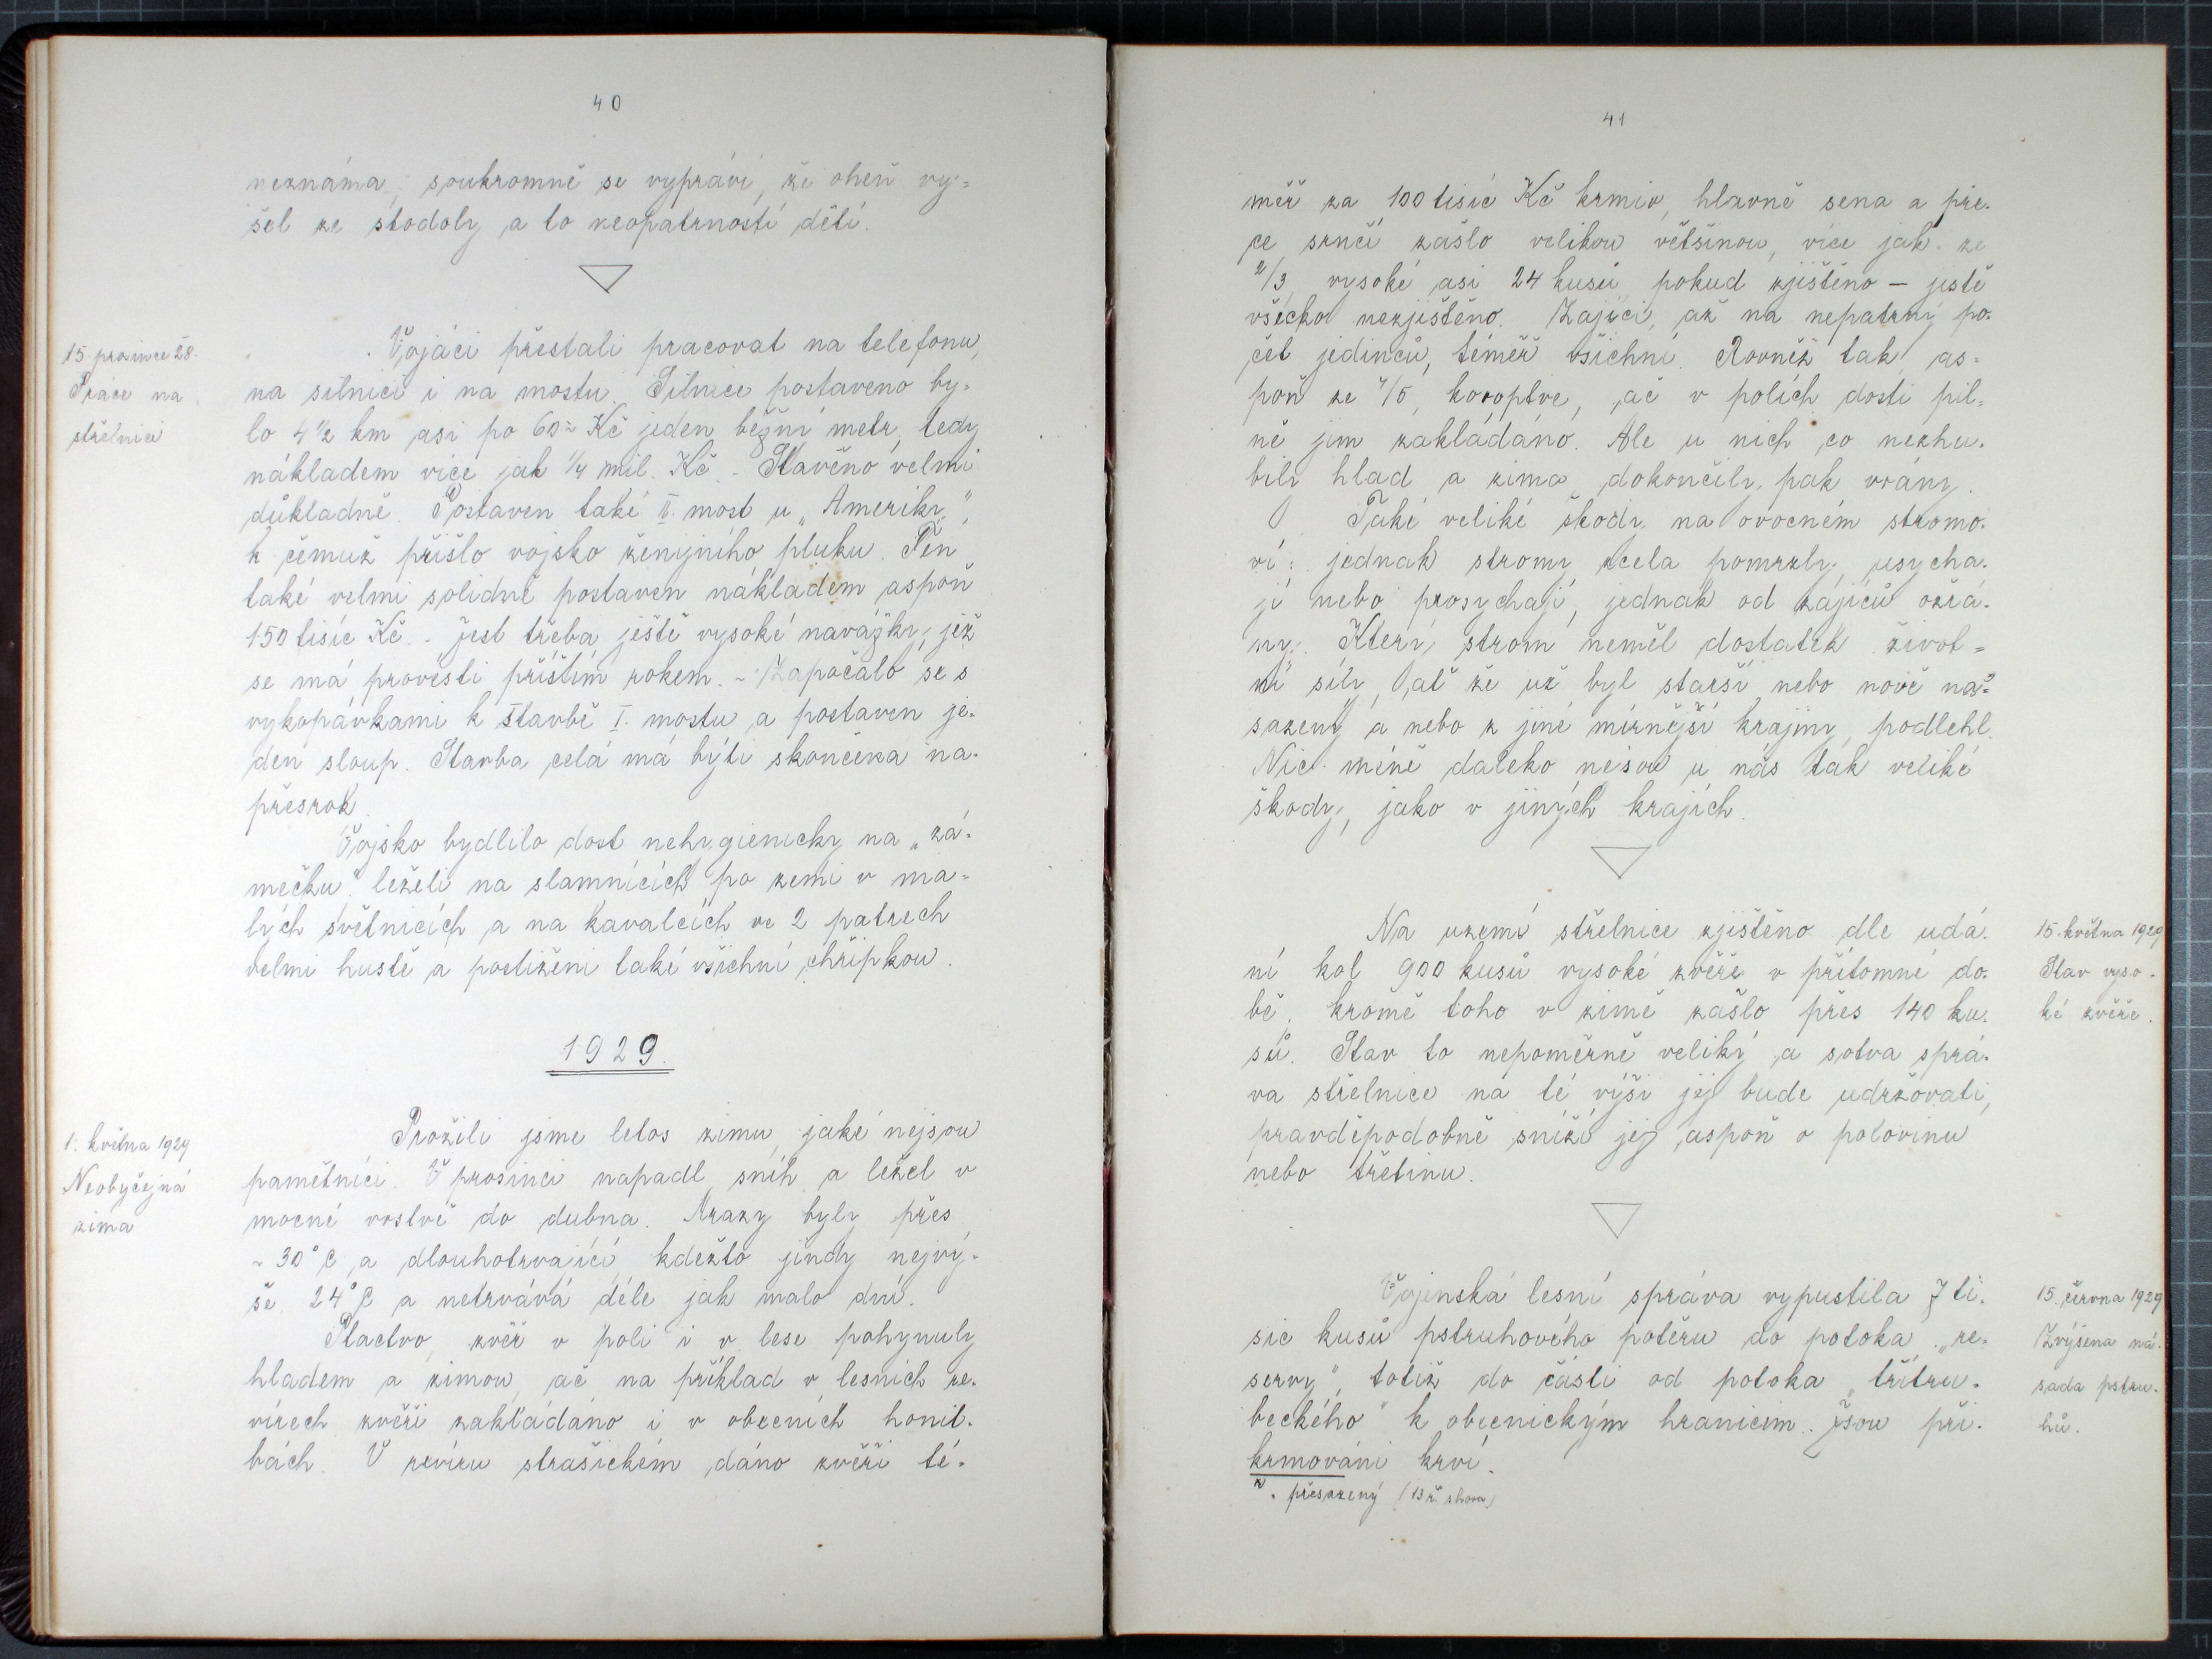 40
neznáma, soukromně se vypráví, že oheň vy-
šel ze stodoly a to neopatrností dětí.
15. prosince 28.
Práce na
střelnici
Vojáci přestali pracovat na telefonu,
na silnici i na mostu. Silnice postaveno by-
lo 4 1/2 km asi po 60 Kč jeden běžný metr, tedy
nákladem více jak 1/4 mil. Kč. - Stavěno velmi
důkladně. Postaven také II. most u „Ameriky",
k čemuž přišlo vojsko ženijního pluku. Ten
také velmi solidně postaven nákladem aspoň
150 tisíc Kč. - Jest třeba ještě vysoké navážky, jež
se má provésti příštím rokem. - Započalo se s
vykopávkami k stavbě I. mostu a postaven je-
den sloup. Stavba celá má býti skončena na-
přesrok.
Vojsko bydlilo dost nehygienicky na „zá-
mečku", leželi na slamnících po zemi v ma-
lých světnicích a na kavalcích ve 2 patrech
velmi hustě a postiženi také všichni chřipkou.
1929.
1. května 1929
Neobyčejná
zima
Prožili jsme letos zimu, jaké nejsou
pamětníci. V prosinci napadl sníh a ležel v
mocné vrstvě do dubna. Mrazy byly přes
- 30° C a dlouhotrvající, kdežto jindy nejvý-
še 24° C a netrvává déle jak málo dní.
Ptactvo, zvěř v poli i v lese pohynuly
hladem a zimou, ač na příklad v lesních re-
vírech zvěři zakládáno i v obecních honit-
bách. V revíru strašickém dáno zvěři té-
41
měř za 100 tisíc Kč krmiv, hlavně sena a pře-
ce srnčí zašlo velikou většinou, více jak ze
2/3, vysoké asi 24 kusů pokud zjištěno - jistě
všecko nezjištěno. Zajíci, až na nepatrný po-
čet jedinců, téměř všichni. Rovněž tak, as-
poň ze 4/5, koroptve, ač v polích dosti pil-
ně jim zakládáno. Ale u nich co nezhu-
bily hlad a zima dokončily pak vrány.
Také veliké škody na ovocném stromo-
ví: jednak stromy zcela pomrzly, usycha-
jí nebo prosychají, jednak od zajíců ožrá-
ny. Který strom neměl dostatek život-
ní síly, ať že už byl starší nebo nově na-
sazený a nebo z jiné mírnější krajiny, podlehl.
Nic méně daleko nejsou u nás tak veliké
škody, jako v jiných krajích.
15. května 1929
Stav vyso-
ké zvěře.
Na území střelnice zjištěno dle udá-
ní kol 900 kusů vysoké zvěře v přítomné do-
bě, kromě toho v zimě zašlo přes 140 ku-
sů. Stav to nepoměrně veliký a sotva sprá-
va střelnice na té výši jej bude udržovati,
pravděpodobně sníží jej aspoň o polovinu
nebo třetinu.
15. června 1929
Zvýšena ná-
sada pstru-
hů.
Vojenská lesní správa vypustila 7 ti-
síc kusů pstruhového potěru do potoka „re-
servy", totiž do části od potoka „třítru-
beckého" k obecnickým hranicím. Jsou při-
krmováni krví.
přesazený (13 ř. shora)